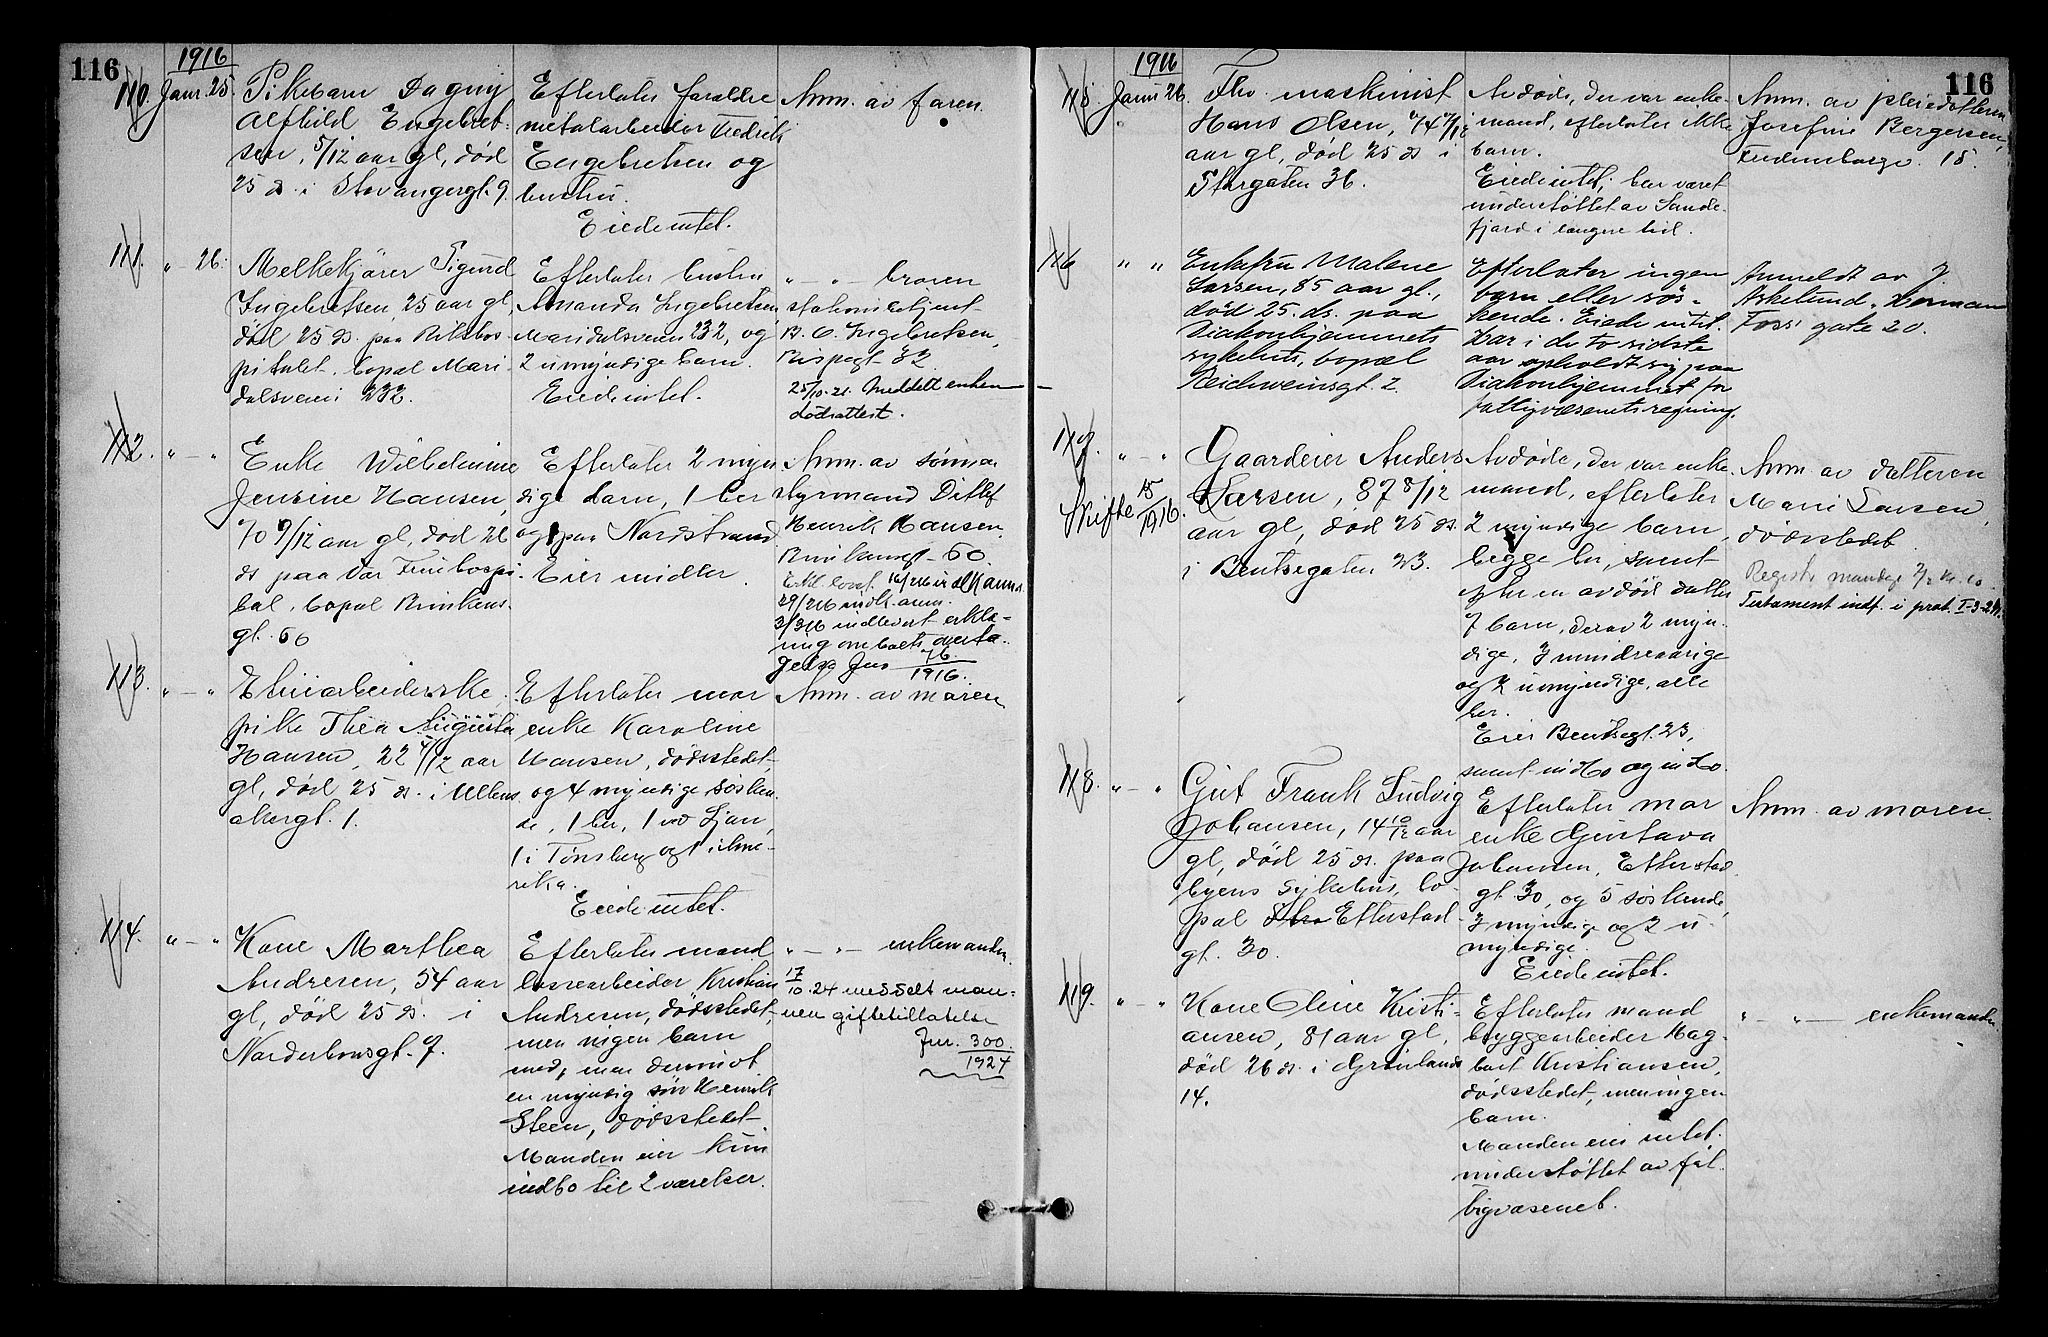 116
1916
110. Janr. 25.
Pikebarn Dagny
Alfhild Engebret-
sen, 5/12 aar gl, død
25 ds. i Stavangergt. 9.
Efterlater forældre
metalarbeider Fredrik
Engebretsen og
hustru.
Eiede intet.
Anm. av faren.
111. " 26.
Melkekjører Sigurd
Ingebretsen, 25 aar gl,
død 25 ds. paa Rikshos-
pitalet, bopæl Mari-
dalsveien 232.
Efterlater hustru
Amanda Ingebretsen
Maridalsveien 232, og
2 umyndige barn.
Eiede intet.
" — " — broren
stationsbetjent
Ingebretsen,
25/10-21. Meddelt enken
dødsattest.
112. " — "
Enke Wilhelmine
Jensine Hansen,
70 9/12 aar gl, død 26
ds paa Vor Frue hospi-
tal, bopæl
gt. 60
Efterlater 2 myn
dige barn, 1 her
og 1 paa Nordstrand
Eier midler.
Anm. av sønnen
styrmand Ditlef
Henrik Hansen
60.
29/2 16 indk. anm.
3/3 16 indlevert erklæ-
ring om boets overta-
gelse Jnr 76
1916.
113. " — "
Etuiarbeiderske,
pike Thea Augusta
Hansen, 22 4/12 aar
gl, død 25 ds. i Ullens-
akergt. 1.
Efterlater mor
enke Karoline
Hansen, dødsstedet,
og 4 myndige søsken-
de, 1 her, 1 ved Ljan,
1 i Tønsberg og 1 i Ame-
rika.
Eiede intet.
Anm. av moren
114. " — "
Kone Marthea
Andresen, 54 aar
gl, død 25 ds. i
Norderhovsgt. 9.
Efterlater mand
løssearbeider Kristian
Andresen, dødsstedet,
men ingen barn
med, men derimot
en myndig søn Henrik
Steen, dødsstedet
Manden eier kun
indbo til 2 værelser.
" — " — enkemanden.
17/10.24 meddelt man-
nen giftetillatelse
Jnr. 300
1924
116
1916
115 Janr 26.
Fhv. maskinist
Hans Olsen, 74 7/12
aar gl, død 25 ds i
Storgaten 36.
Avdøde, der var enke-
mand, efterlater ikke
barn.
Eiede intet, har været
understøttet av Sande-
fjord i længere tid.
Anm. av pleiedatteren
Josefine Bergersen,
Fredensborgv. 15.
116 " "
Enkefru Malene
Larsen, 85 aar gl.,
død 25. ds. paa
Diakonhjemmets
sykehus, bopæl
Reichweinsgt. 2
Efterlater ingen
barn eller søs-
kende. Eiede intet.
Har i de to sidste
aar opholdt sig paa
Diakonhjemmet for
fattigvæsenets regning.
Anmeldt av J.
Askelund, Herman
Foss' gate 20.
117. " — "
Skifte 15/1916.
Gaardeier Anders
Larsen, 87 8/12
aar gl, død 25 ds.
i Bentsegaten 23.
Avdøde, der var enke
mand, efterlater
2 myndige barn,
begge her, samt
efter en avdød datter
7 barn, derav 2 myn-
dige, 3 mindreaarige
og 2 umyndige, alle
her.
Eier Bentsegt. 23,
samt indbo og indbo.
Anm. av datteren
Marie Larsen,
dødsstedet
Registr. mandag 7/2 kl. 10
Testament indf. i prot. I-3-
118. " — "
Gut Frank Ludvig
Johansen, 14 10/12 aar
gl, død 25 ds. paa
byens sykehus, bo-
pæl Etterstad-
gt. 30.
Efterlater mor
enke Gustava
Johansen, Etterstad-
gt. 30, og 5 søskende,
3 myndige og 2 u-
myndige.
Eiede intet.
Anm. av moren.
119. " — "
Kone Oline Kristi-
ansen, 81 aar gl,
død 26 ds. i Grønland
14.
Efterlater mand
bryggearbeider Hag-
bart Kristiansen,
dødsstedet, men ingen
barn.
Manden eier intet.
understøttet av fat-
tigvæsenet.
" — " — enkemanden